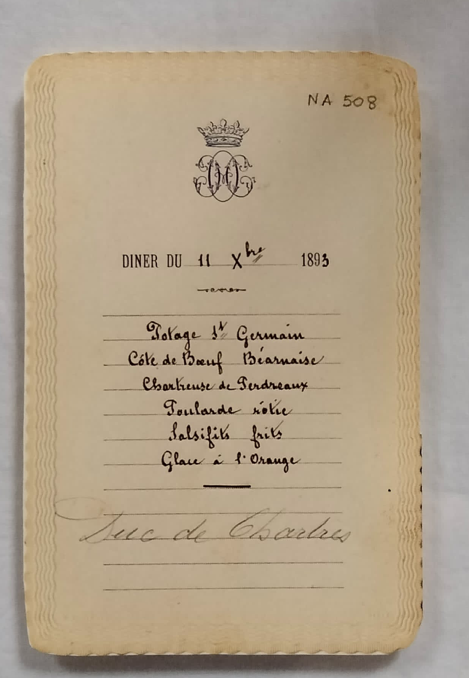 NA 508
DINER DU 11 Xbre 1893
Potage St Germain
Côte de Bœuf Béarnaise
Chartreuse de Perdreaux
Poularde rôtie
Salsifits frits
Glace à l'Orange
Duc de Chartres